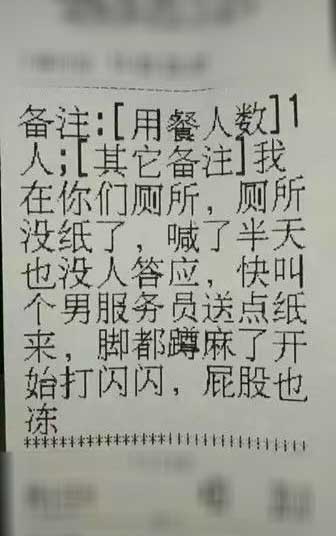 备注:[用餐人数]1
人;[其它备注]我
在你们厕所，厕所
没纸了，喊了半天
也没人答应，快叫
个男服务员送点纸
来，脚都蹲麻了开
始打闪闪，屁股也
冻